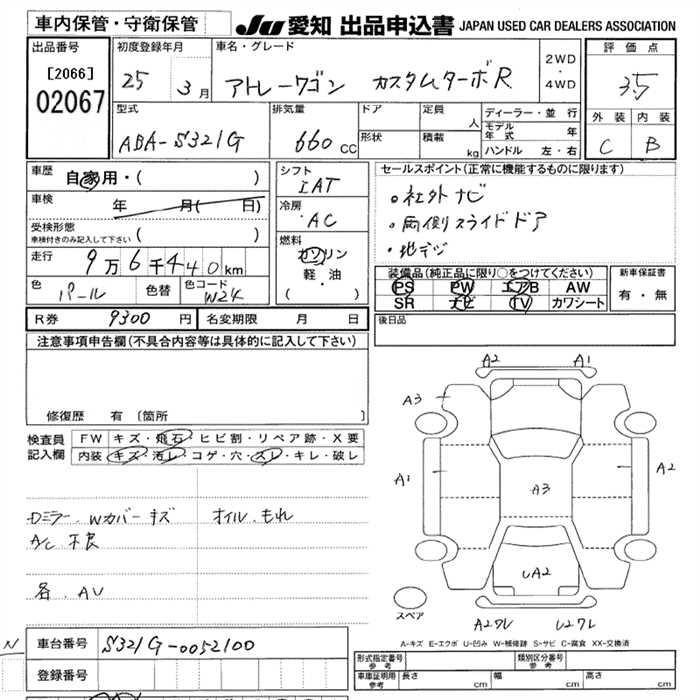 車内保管・守衛保管 JU 愛知 出品申込書 JAPAN USED CAR DEALERS ASSOCIATION
出品番号 初度登録年月 車名・グレード 評価点
[2066] 25 3月 アトレーワゴン カスタムターボR 2WD・4WD 3.5
02067
型式 排気量 ドア 定員 ディーラー・並行 外装 内装
ABA-S321G 660cc 形状 積載 人 kg モデル年式 年 C B
ハンドル 左・右
車歴 自家用・( ) シフト IAT セールスポイント(正常に機能するものに限ります)
車検 年 月( 日) 冷房 AC ・社外ナビ
受検形態 ( ) ・両側スライドドア
車検付きのみ記入して下さい 燃料 ・地デジ
走行 9万6千440km ガソリン
軽・油
( )
装備品(純正品に限り○をつけてください) 新車保証書
PS PW エアB AW 有・無
SR ナビ TV カワシート
色 パール 色替 色コード W24
R券 9300円 名変期限 月 日 後日品
注意事項申告欄(不具合内容等は具体的に記入して下さい)
修復歴 有 〔箇所
A2 A1
A3
A1 A2
A3
UA2
検査員 FW キズ・飛石・ヒビ割・リペア跡・X要
記入欄 内装 キズ・汚レ・コゲ・穴・スレ・キレ・破レ
Dミラー、Wカバーキズ オイルもれ
A/C 不良
各 AU
スペア
A-キズ E-エクボ U-凹み W-補修跡 S-サビ C-腐食 XX-交換済
N 車台番号 S321G-0052100
登録番号
形式指定番号 参考 類別区分番号 参考
車庫証明用 参考 長さ cm 幅 cm 高さ cm